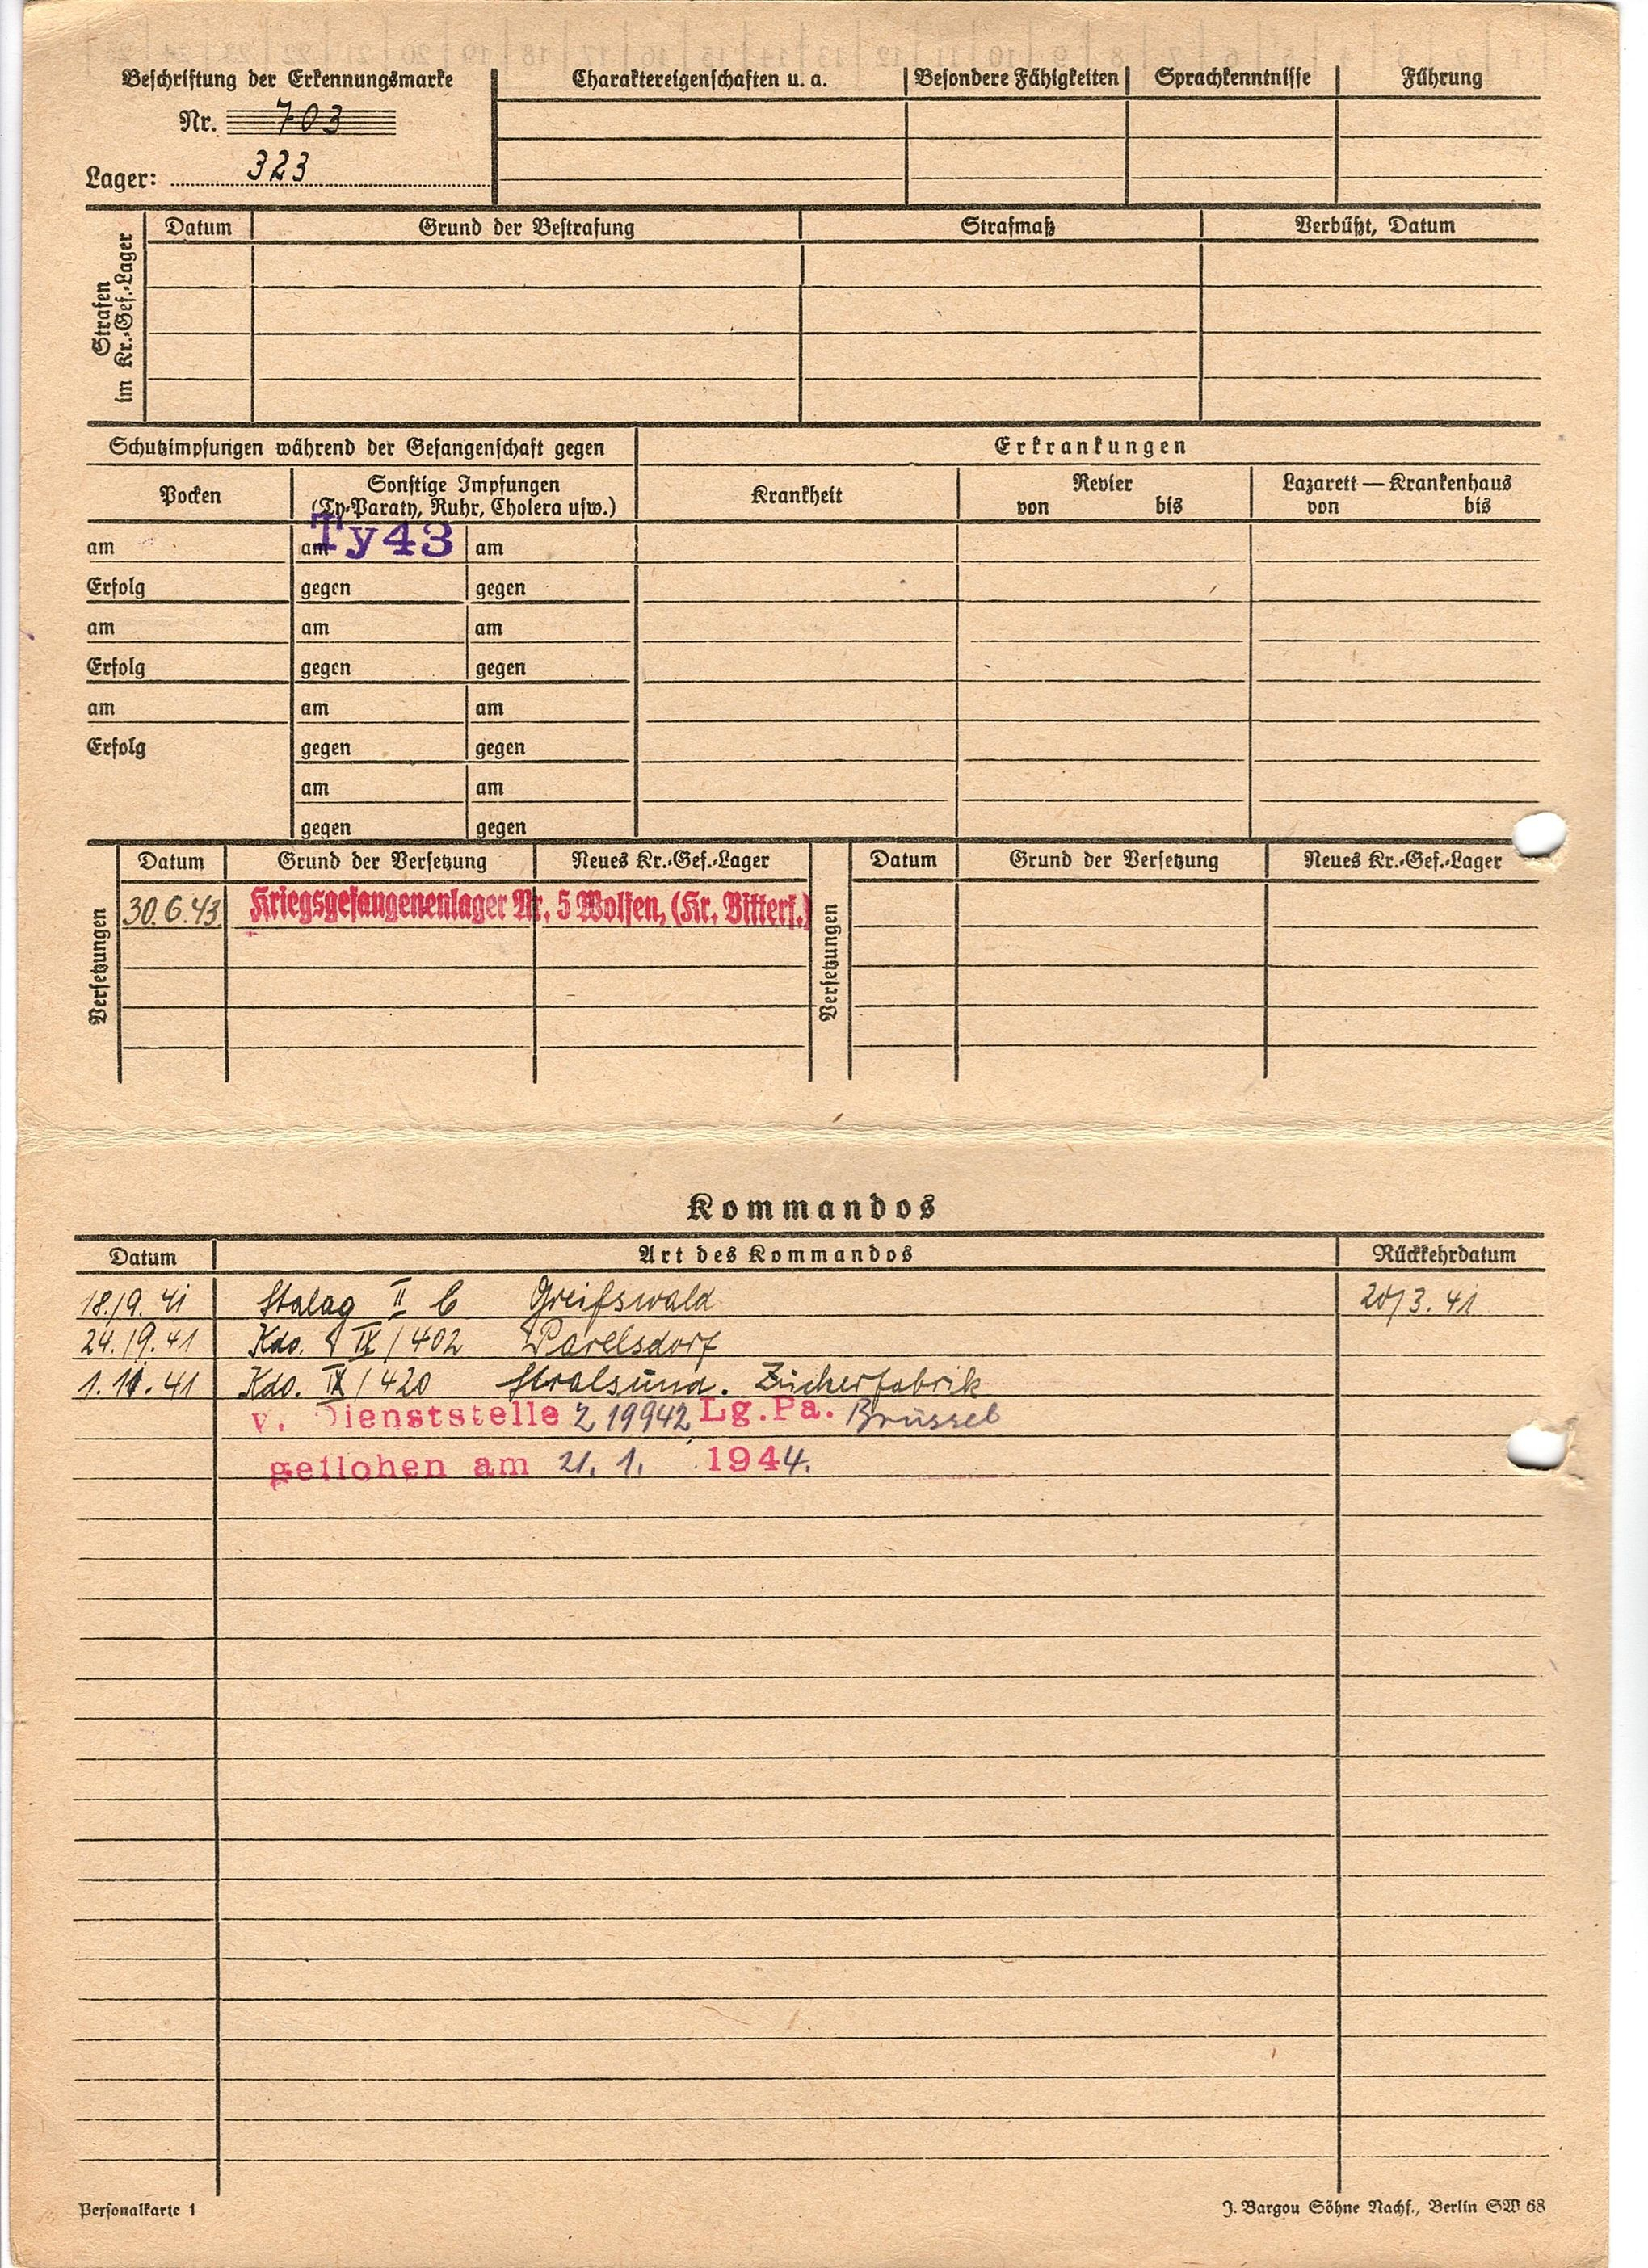 Beschriftung der Erkennungsmarke
Nr. 703
Lager: 323
Charaktereigenschaften u. a. Besondere Fähigkeiten Sprachkenntnisse Führung
Strafen
im Kr.-Gef.-Lager
Datum Grund der Bestrafung Strafmaß Verbüßt, Datum
Schutzimpfungen während der Gefangenschaft gegen Erkrankungen
Pocken Sonstige Impfungen
(Ty-Paraty, Ruhr, Cholera usw.) Krankheit Revier
von bis Lazarett — Krankenhaus
von bis
am am Ty43 am
Erfolg gegen gegen
am am am
Erfolg gegen gegen
am am am
Erfolg gegen gegen
am am
gegen gegen
Versetzungen
Datum Grund der Versetzung Neues Kr.-Gef.-Lager
30.6.43. Kriegsgefangenenlager Nr. 5 Wolfen, (Kr. Bitterf.)
Versetzungen
Datum Grund der Versetzung Neues Kr.-Gef.-Lager
Kommandos
Datum Art des Kommandos Rückkehrdatum
18./9. 41 Stalag II C Greifswald 20/3. 41
24./9. 41 Kdo. IX/402
1.11.41 Kdo. IX/420 Stralsund. Zuckerfabrik
v. Dienststelle 2 19942 Lg.Pa. Brüssel
geflohen am 21. 1. 1944.
Personalkarte 1
J. Bargou Söhne Nachf., Berlin SW 68